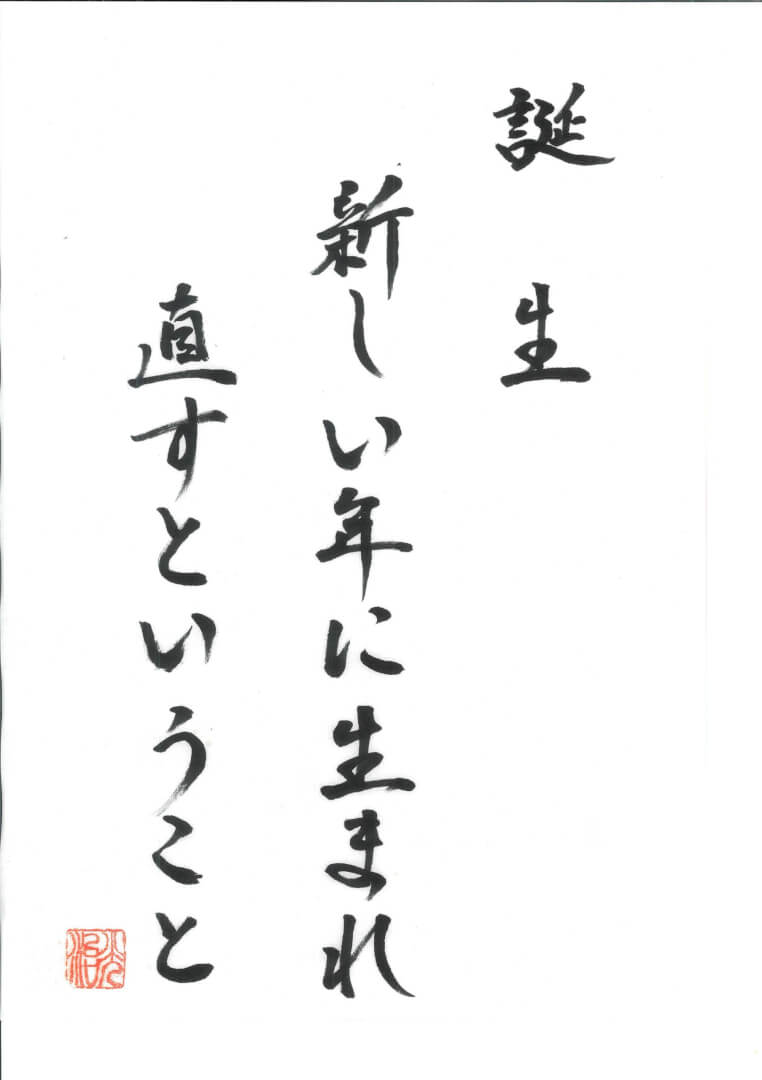 誕生
新しい年に生まれ
直すということ